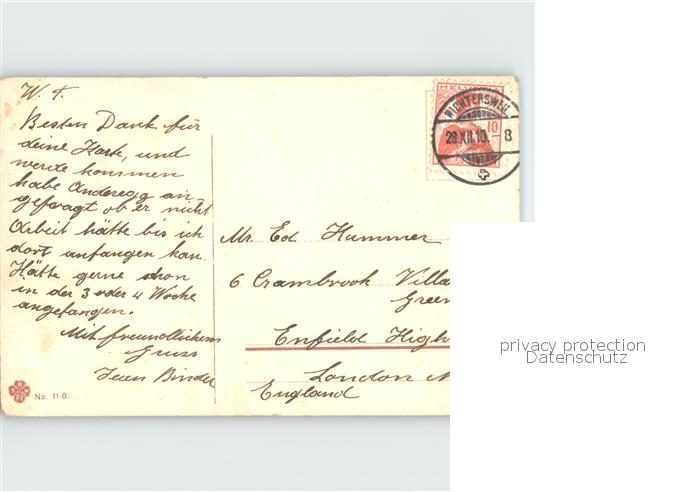 W. F.
Besten Dank für
deine Karte, und
werde kommen
habe Anderegg an-
gefragt ob er nicht
Arbeit hätte bis ich
dort anfangen kan.
Hätte gerne schon
in der 3 oder 4 Woche
angefangen.
Mit freundlichem
Gruss
Jean Binder
No. 11-B.
HELVE
10
RICHTERSWEIL
28.XII.10.–8
Mr. Ed Hummer
6 Crambrook Villa
Green
Enfield High
London N
England
privacy protection
Datenschutz